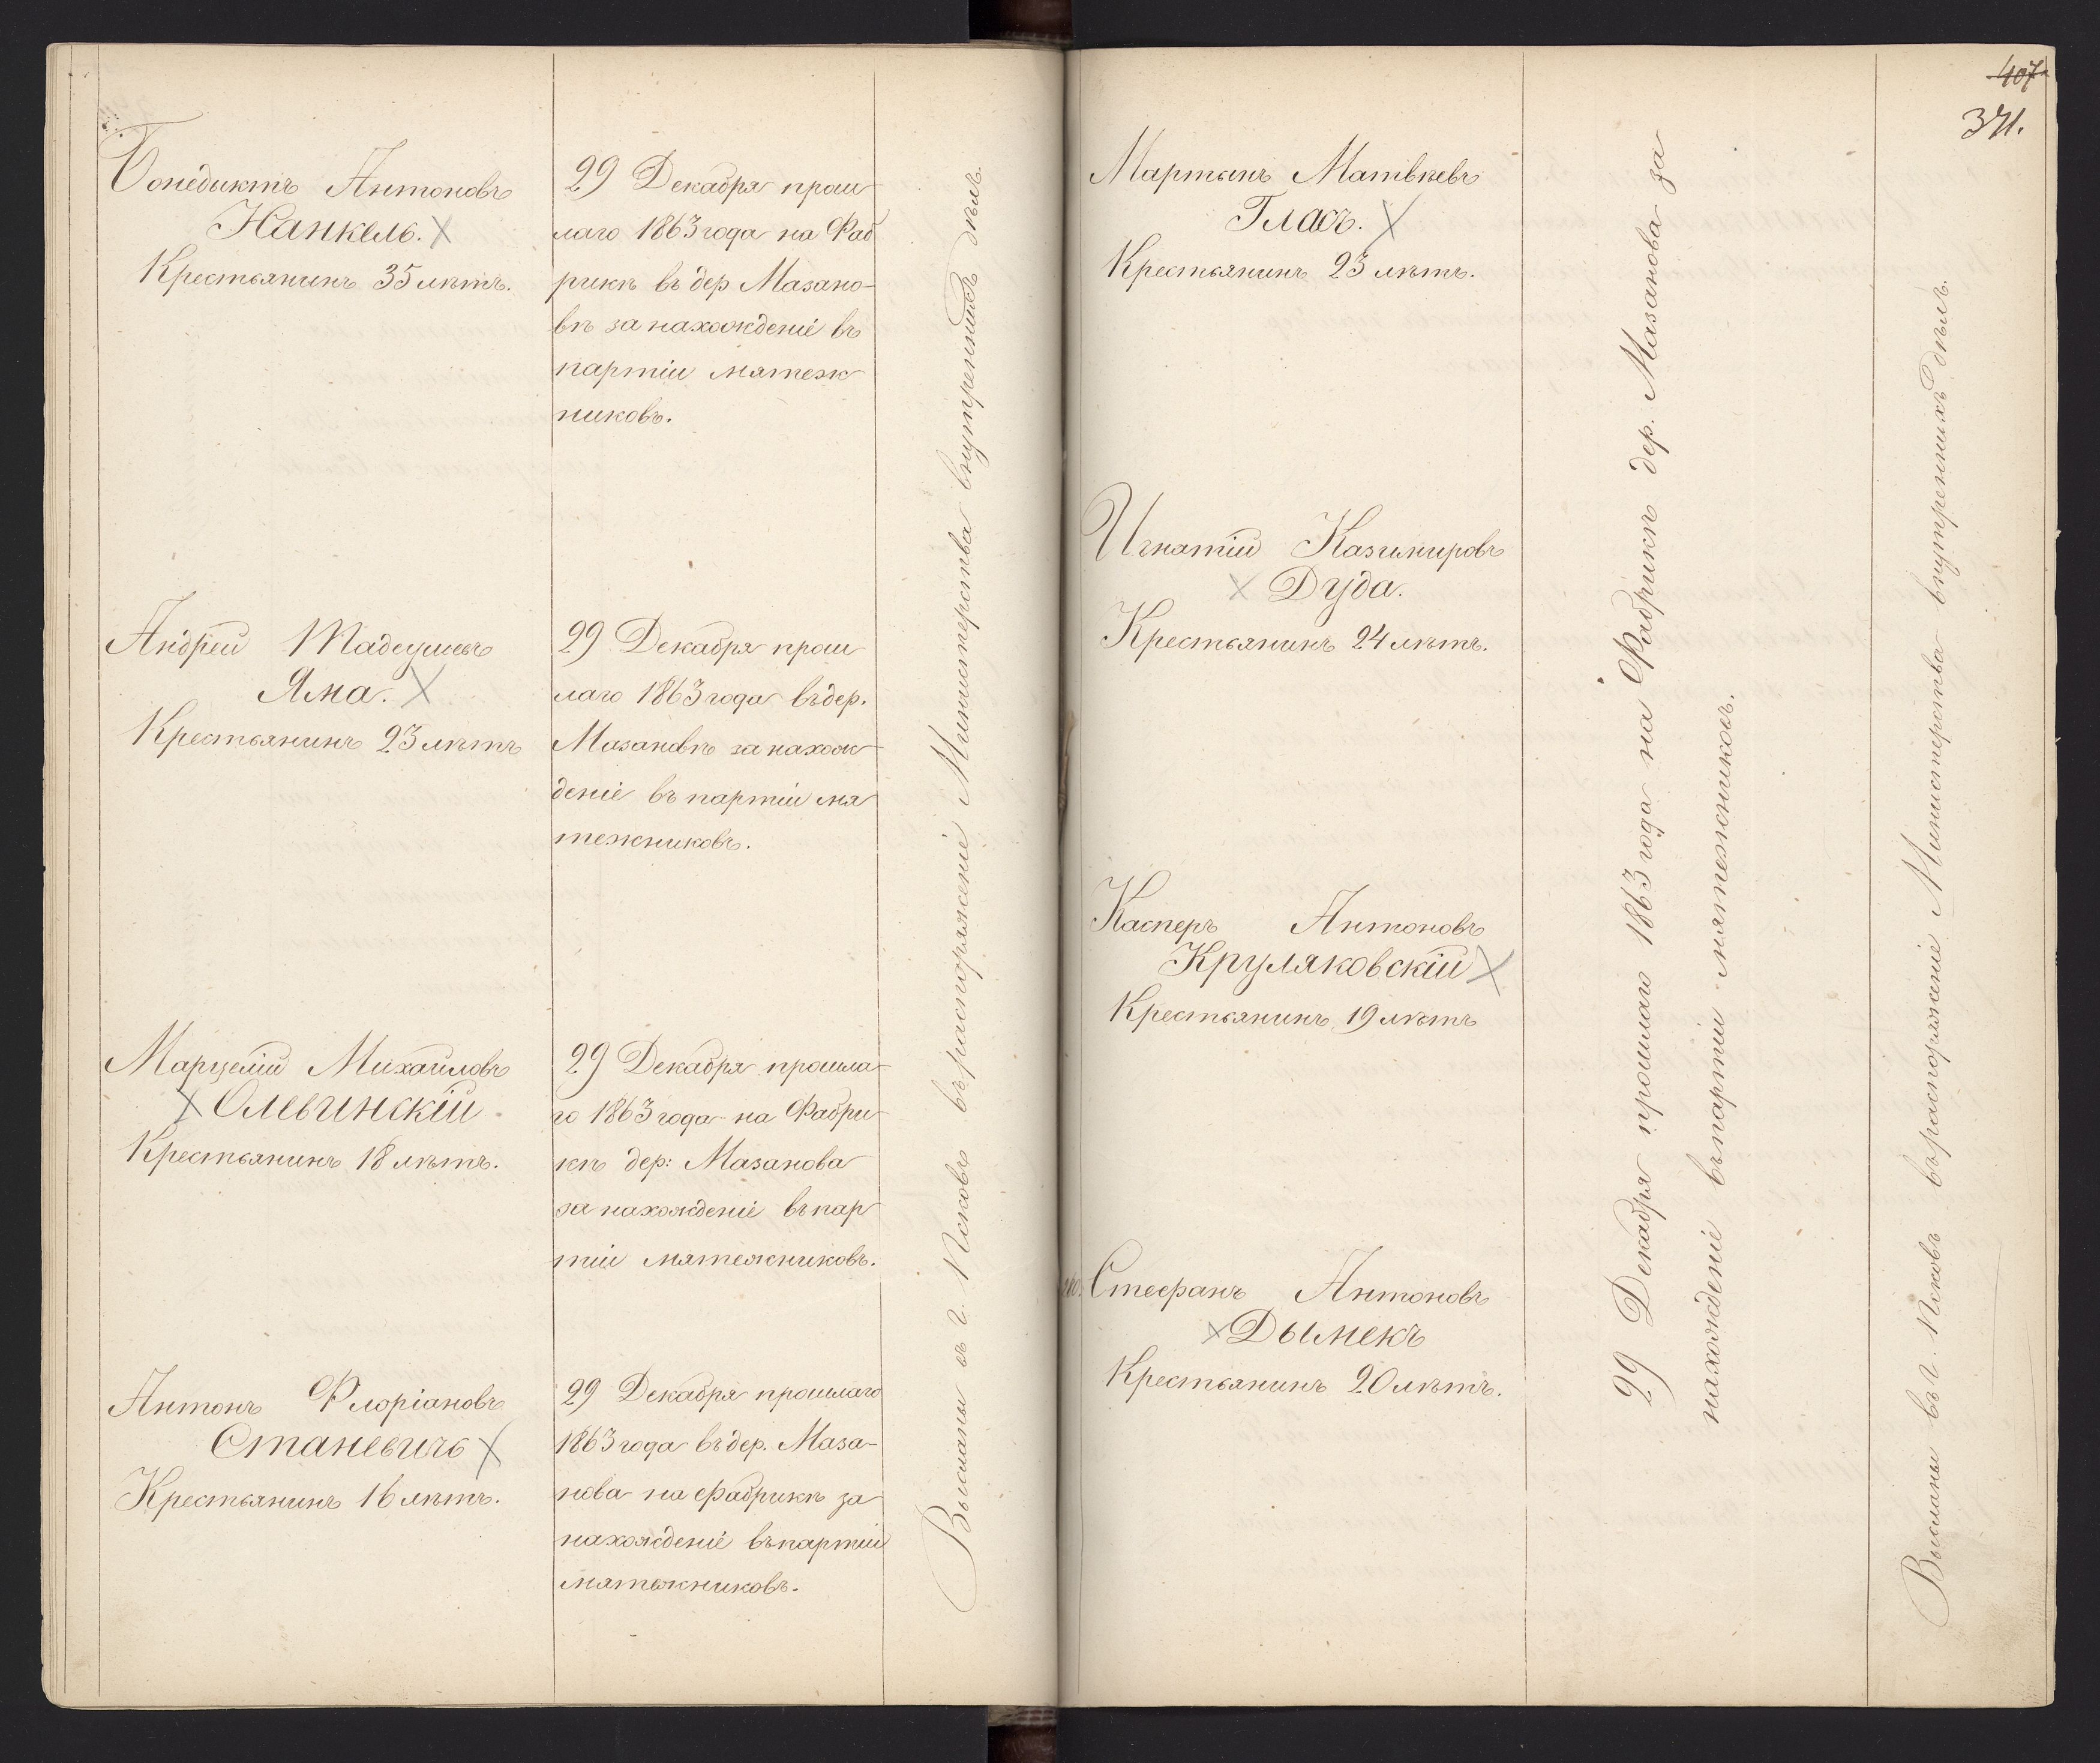 Бенедыктъ Антоновъ
Нанкель.
Крестьянинъ 35 лѣтъ.
29 Декабря прош
лаго 1863 года на Фаб
рикѣ въ дер Мазано-
вѣ за нахожденіе въ
партіи мятеж
никовъ.
Андрей Тадеушевъ
Яма.
Крестьянинъ 23 лѣтъ
29 Декабря прош
лаго 1863 года въ дер.
Мазановѣ за нахож
деніе въ партіи мя
тежниковъ.
Марцелій Михайловъ
Олевинскій
Крестьянинъ 18 лѣтъ.
29 Декабря прошла
го 1863 года на Фабри
кѣ дер: Мазанова
за нахожденіе въ пар
тіи мятежниковъ.
Антонъ Флоріановъ
Станевичъ
Крестьянинъ 16 лѣтъ.
29 Декабря прошлаго
1863 года въ дер. Маза-
нова на Фабрикѣ за
нахожденіе въ партіи
мятежниковъ.
Высланы въ г. Псковъ въ распоряженіе Министерства внутреннихъ дѣлъ.
407
371.
Мартынъ Матвѣевъ
Гласъ.
Крестьянинъ 23 лѣтъ.
Игнатій Казимировъ
Дуда.
Крестьянинъ 24 лѣтъ.
Касперъ Антоновъ
Круляковскій
Крестьянинъ 19 лѣтъ
Стефанъ Антоновъ
Дымекъ
Крестьянинъ 20 лѣтъ.
29 Декабря прошлаго 1863 года на Фабрикѣ дер. Мазанова за
нахожденіе въ партіи мятежниковъ.
Высланы въ г. Псковъ въ распоряженіе Министерства внутреннихъ дѣлъ.